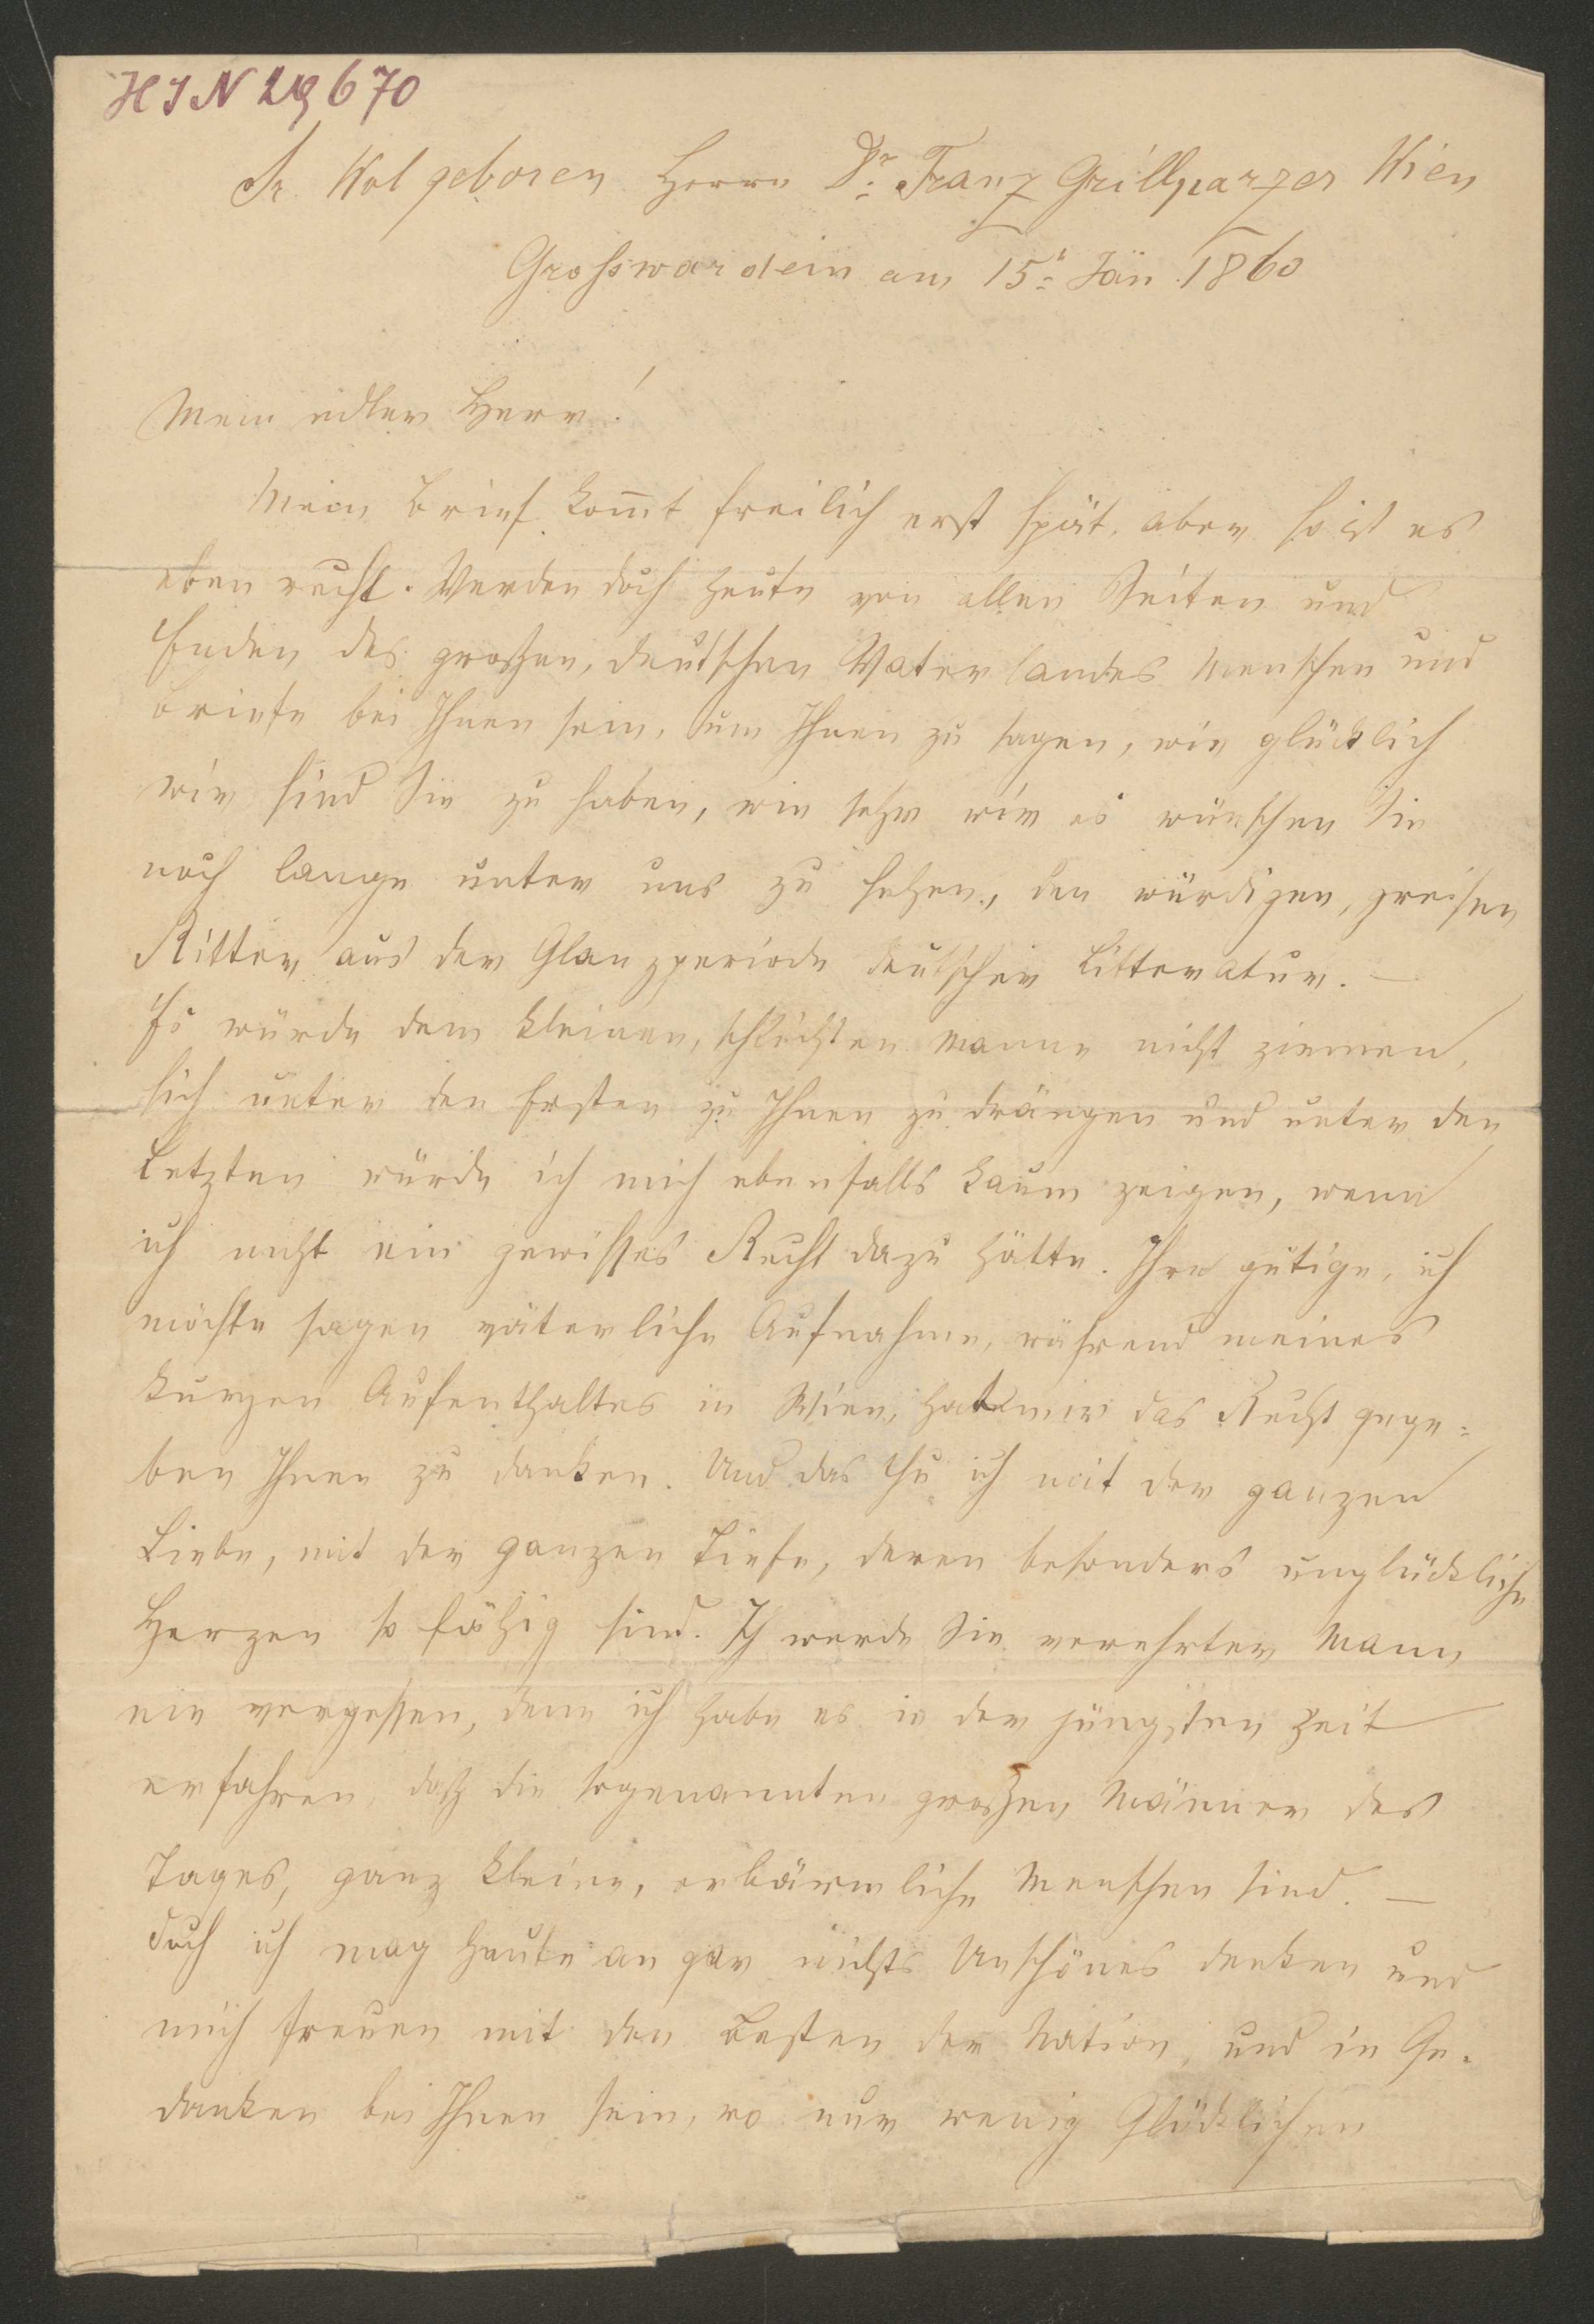 HIN 29670
Sr. Wolgeboren Herrn Dr: Franz Grillparzer Wien
Grosswardein am 15t: Jän. 1860
Mein edler Herr!
Mein Brief kom̅t freilich erst spät, aber so ist es
eben recht. Werden doch heute von allen Seiten und
Enden des großen, deutschen Vaterlandes Menschen und
Briefe bei Ihnen sein, um Ihnen zu sagen, wie glücklich
wir sind Sie zu haben, wie sehr wir es wünschen Sie
noch lange unter uns zu sehen, den würdigen, greisen
Ritter aus der Glanzperiode deutscher Litteratur. —
Es würde dem kleinen, schlichten Manne nicht ziemen,
sich unter den Ersten zu Ihnen zu drängen und unter den
Letzten würde ich mich ebenfalls kaum zeigen, wenn
ich nicht ein gewisses Recht dazu hätte. Ihre gütige, ich
möchte sagen väterliche Aufnahme, während meines
kurzen Aufenthaltes in Wien, hat mir das Recht gege=
ben Ihnen zu danken. Und das thu ich mit der ganzen
Liebe, mit der ganzen Tiefe, deren besonders unglückliche
Herzen so fähig sind. Ich werde Sie verehrter Mann
nie vergessen, denn ich habe es in der jüngsten Zeit
erfahren, daß die sogenannten großen Männer des
Tages, ganz kleine, erbärmliche Menschen sind. —
Doch ich mag heute an gar nichts Unschönes denken und
mich freuen mit den Besten der Nation, und in Ge=
danken bei Ihnen sein, wo nur wenig Glücklichen